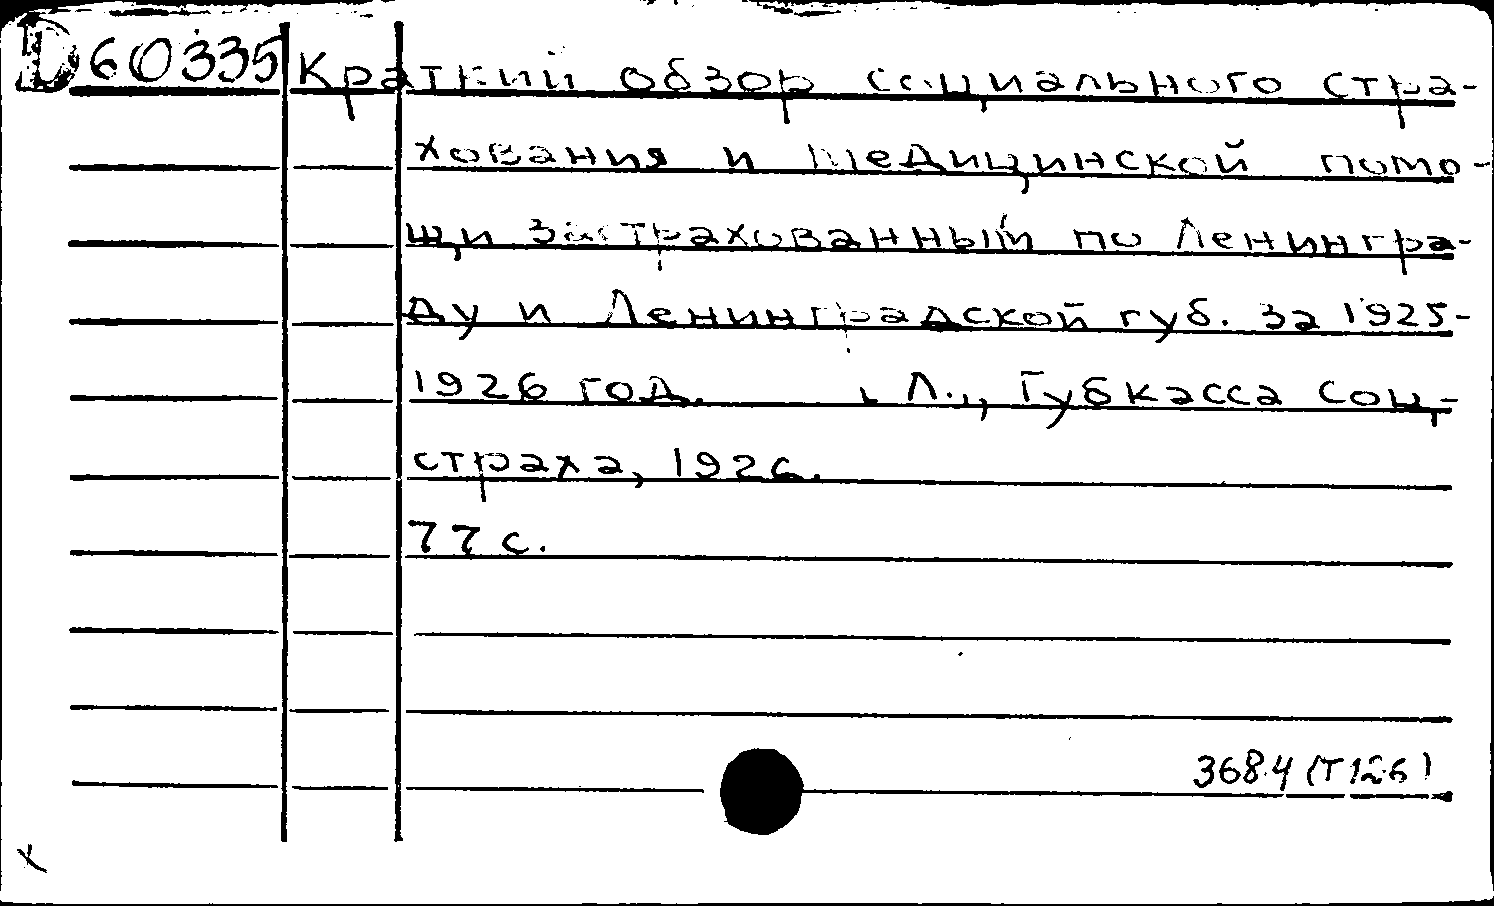 D60335 Краткий обзор социального стра-
хования и медицинской помо-
щи застрахованным по Ленингра-
ду и Ленинградской губ. за 1925-
1926 год. Л., Губкасса соц.-
страха, 1926.
77 с.
368.4 (Т126)
х